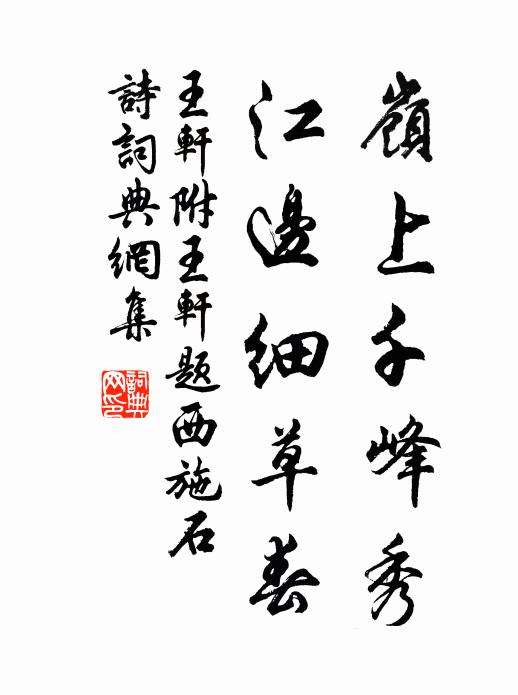 嶺上千峰秀
江邊細草春
王軒附王軒題西施石
詩詞典網集
詞典
网印